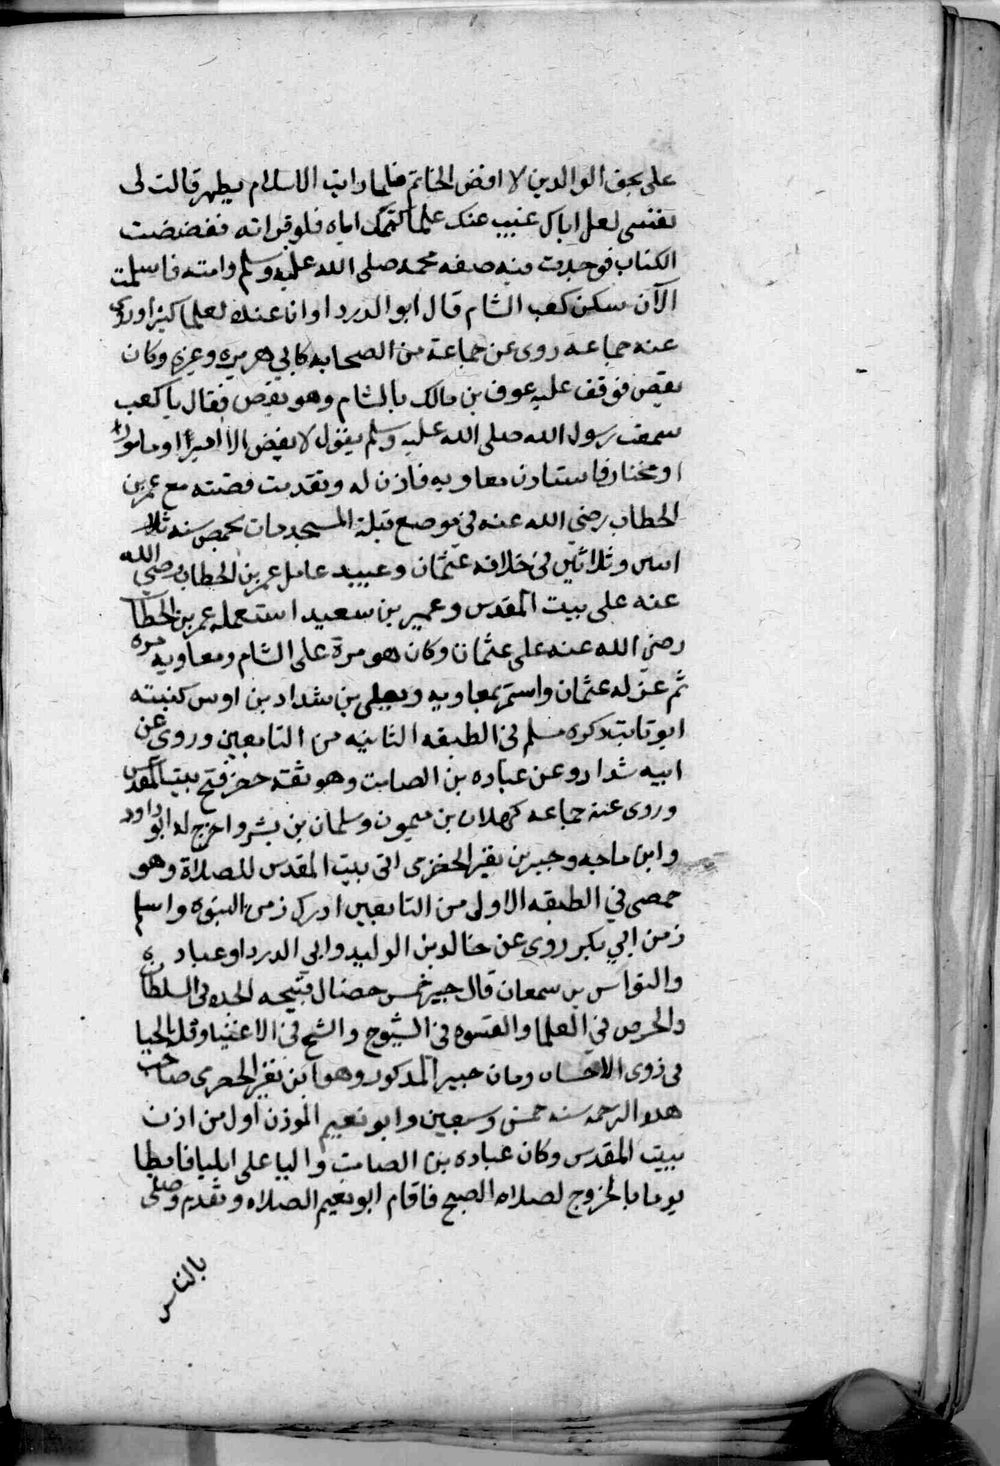 على بحق الوالدين لا افض الخاتم فلما رايت الاسلام يظهر قالت لى
نفسى لعل اباك غيب عنك علما كتمك اياه فلو قراته ففضضت
الكتاب فوجدت فيه صفه محمد صلى الله عليه وسلم وامته فاسلمت
الآن سكن كعب الشام قال ابو الدردا وانا عنده لعلما كثيرا وروى
عنه جماعه روى عن جماعة من الصحابه كابي هريره وغيره وكان
يقص فوقف عليه عوف بن مالك بالشام وهو يقص فقال يا كعب
سمعت رسول الله صلى الله عليه وسلم يقول لا يقص الا اميرا او مامورا
او مختار فاستاذن معاويه فاذن له وتقدمت قصته مع عمر بن
الخطاب رضي الله عنه في موضع قبلة المسجد مات بحمص سنه
اثنين وثلاثين في خلافه عثمان وعبيد عامل عمر بن الخطاب رضي الله
عنه على بيت المقدس وعمير بن سعيد استعمله عمر بن الخطا
رضي الله عنه على عثمان وكان هو مرة على الشام ومعاويه مره
ثم عزله عثمان واستمر بمعاويه ويعلى بن شداد بن اوس كنيته
ابو ثابت ذكره مسلم في الطبقه الثانيه من التابعين وروى عن
ابيه شداد وعن عباده بن الصامت وهو ثقه حضر فتح بيت المقدس
وروى عنه جماعه كهلال بن ميمون وسلمان بن بشر واخرج له ابو داود
وابن ماجه وجبير بن نفير الحضرى اتى بيت المقدس للصلاة وهو
حمصى في الطبقه الاولى من التابعين ادرك زمن النبوه واسلم
زمن ابي بكر روى عن خالد بن الوليد وابي الدردا وعباده
والنواس بن سمعان قال جبير خمس خصال قبيحه الحده فى السلطان
والحرص في العلما والفتوه فى الشيوخ والشح فى الاغنيا وقلة الحيا
فى ذوى الاحساب ومات جبير المذكور وهو ابن نفير الحضرى صاحب
هذه الترجمه سنه خمس وسبعين وابو نعيم الموذن اول من اذن
ببيت المقدس وكان عباده بن الصامت واليا على ايليا فابطا
يوما بالخروج لصلاه الصبح فاقام ابو نعيم الصلاه وتقدم وصلى
بالناس